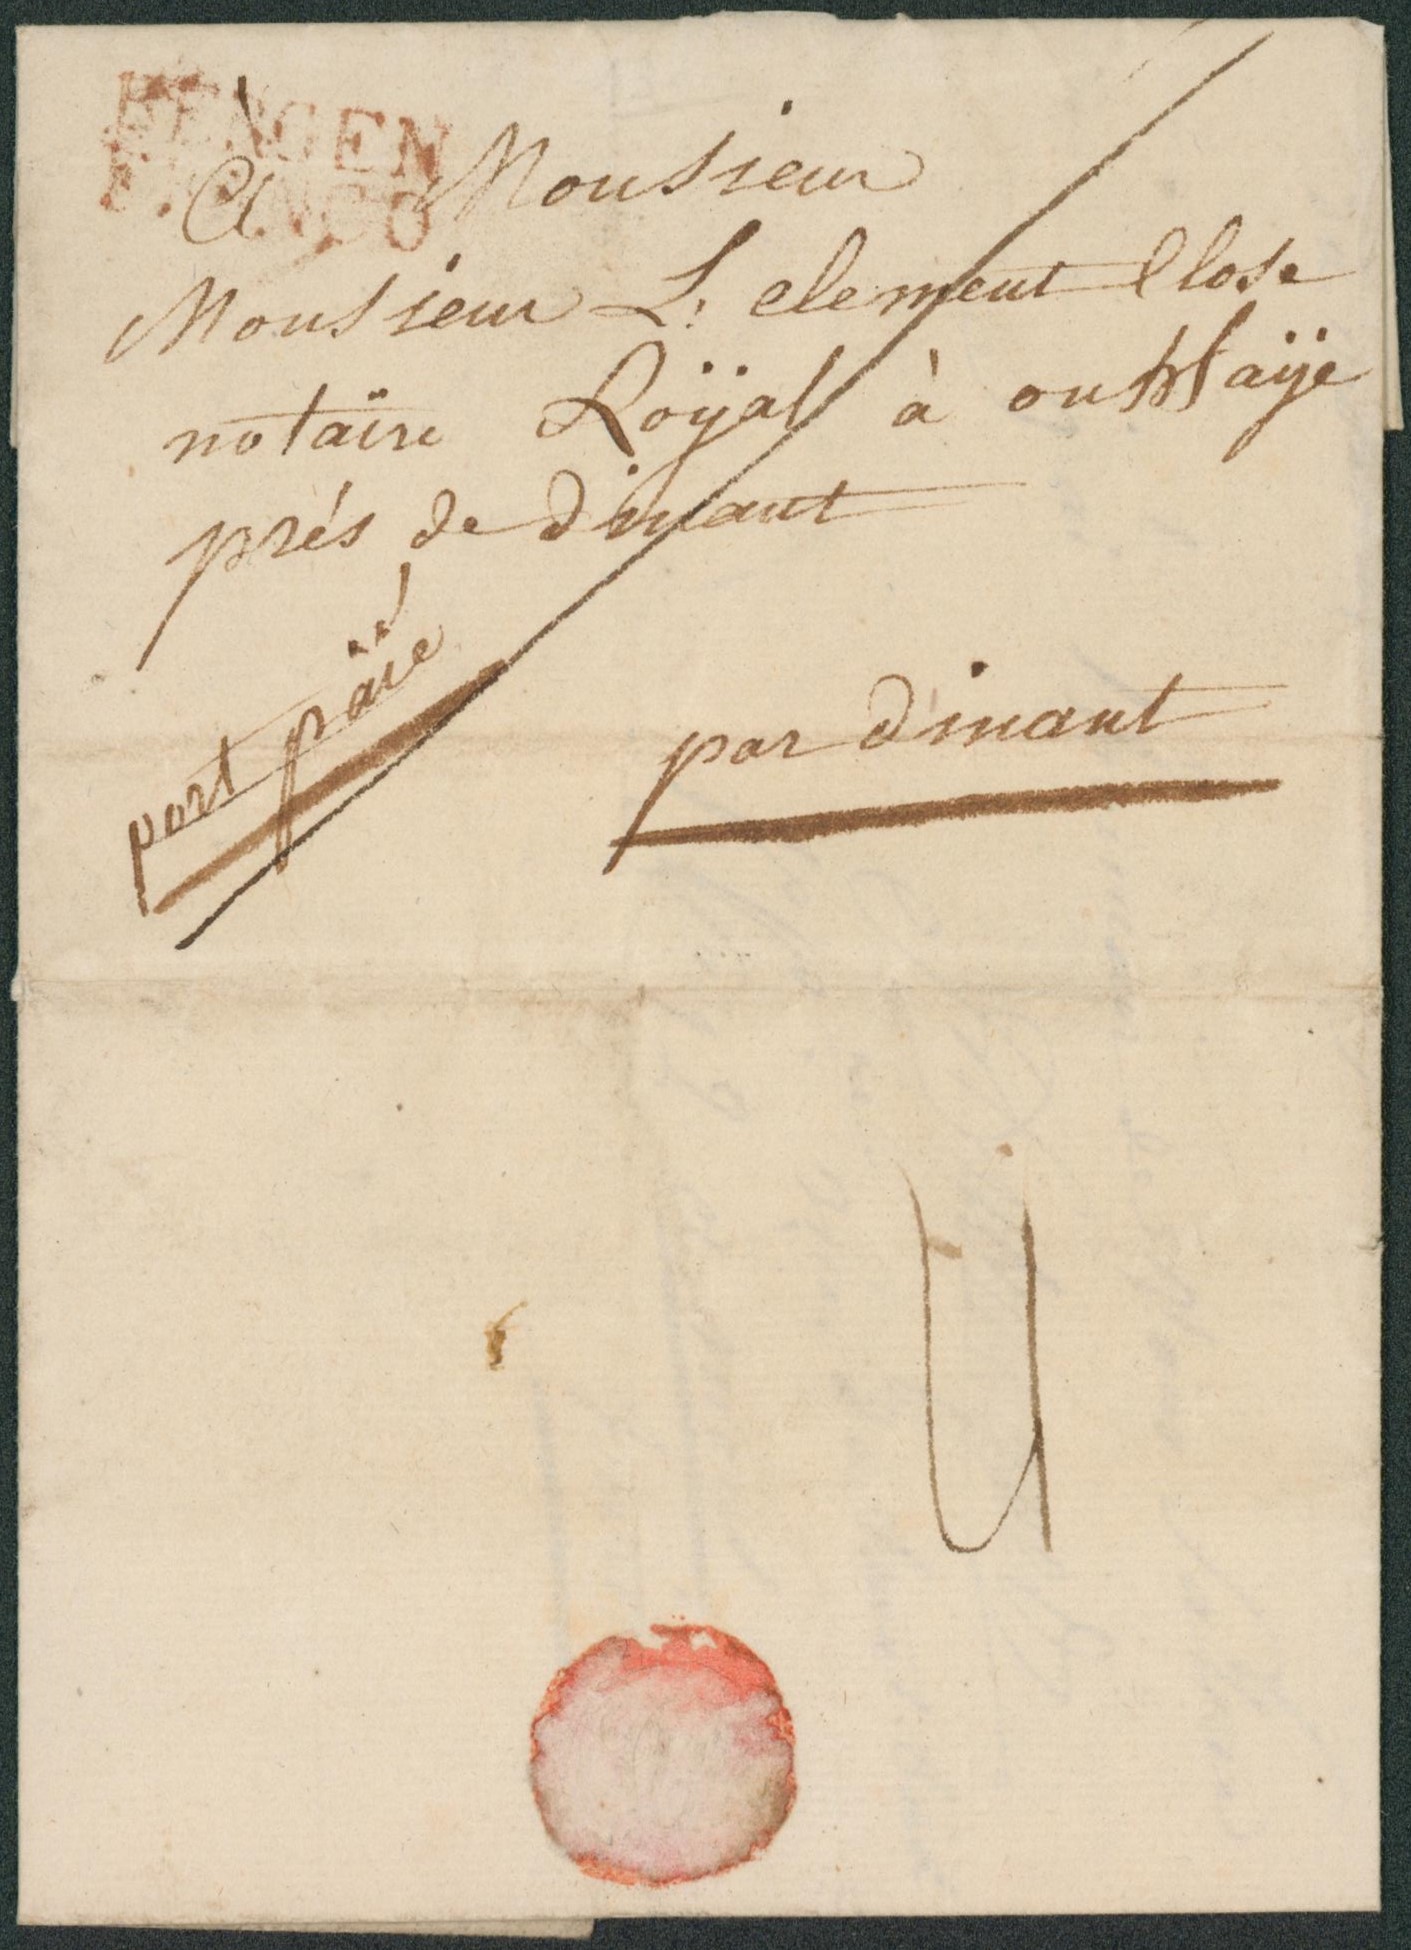 BERGEN
FRANCO
à Monsieur
Monsieur L. clement Close
notaïre Roÿal à onthaÿe
prés de dinant
port païé
par dinant
4